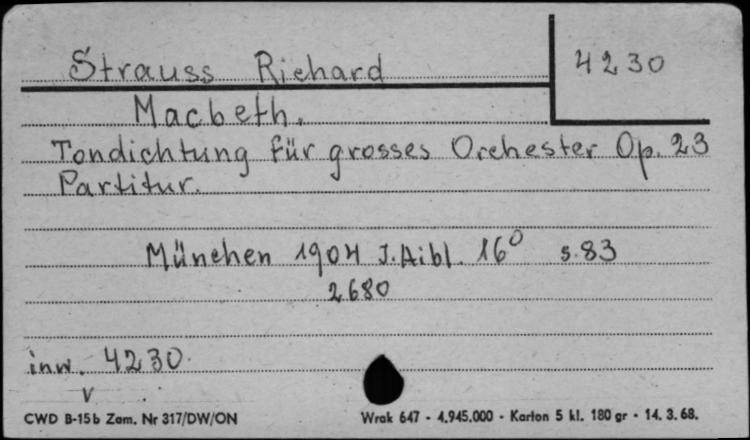 Strauss Richard 4230
Macbeth.
Tondichtung für grosses Orchester Op. 23
Partitur.
München 1904 J. Aibl. 16° s. 83
2680
inw. 4230
v
CWD B-15b Zam. Nr 317/DW/ON Wrak 647 - 4.945.000 - Karton 5 kl. 180 gr - 14. 3. 68.